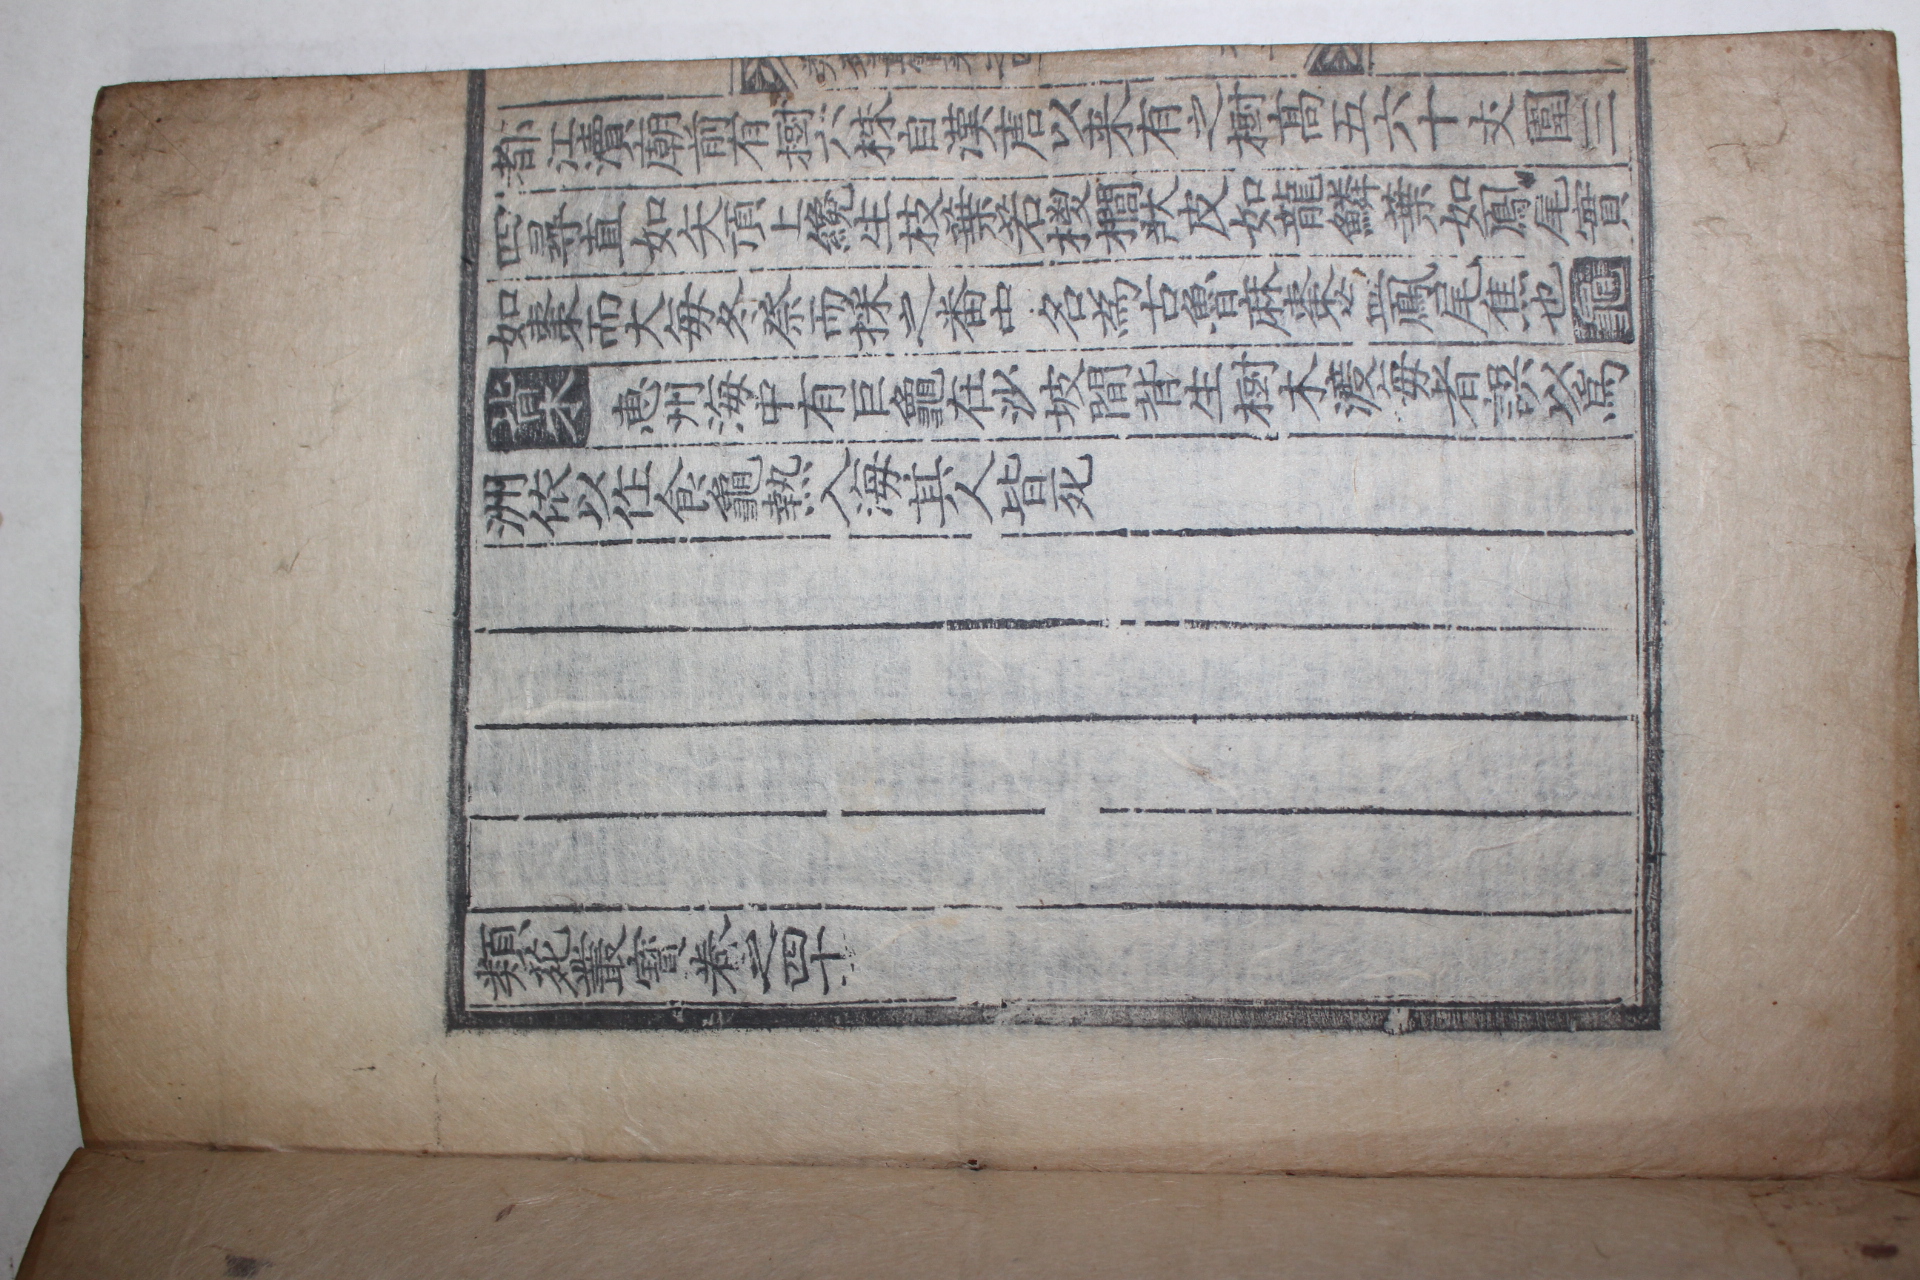 都江瀆廟前有樹六株自漢唐以來有之樹高五六十丈圍三
四尋直如矢頂上纔生枝葉若椶櫚狀皮如龍鱗葉如鳳尾實
如棗而大每冬祭而採之番中名爲古魯麻棗盖鳳尾蕉也龜
背木惠州海中有巨龜在沙坡間背生樹木渡海者誤以爲
洲依以住食龜熱入海其人皆死
類苑叢寶卷之四十